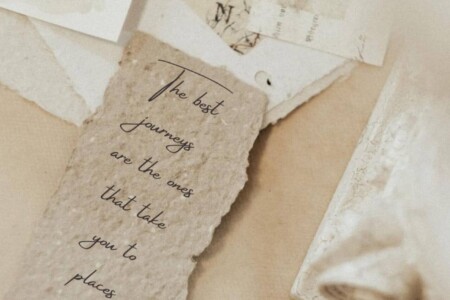 The best
journeys
are the ones
that take
you to
places